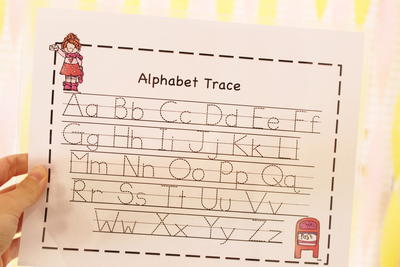 Alphabet Trace
Aa Bb Cc Dd Ee Ff
Gg Hh Ii Jj Kk Ll
Mm Nn Oo Pp Qq
Rr Ss Tt Uu Vv
Ww Xx Yy Zz